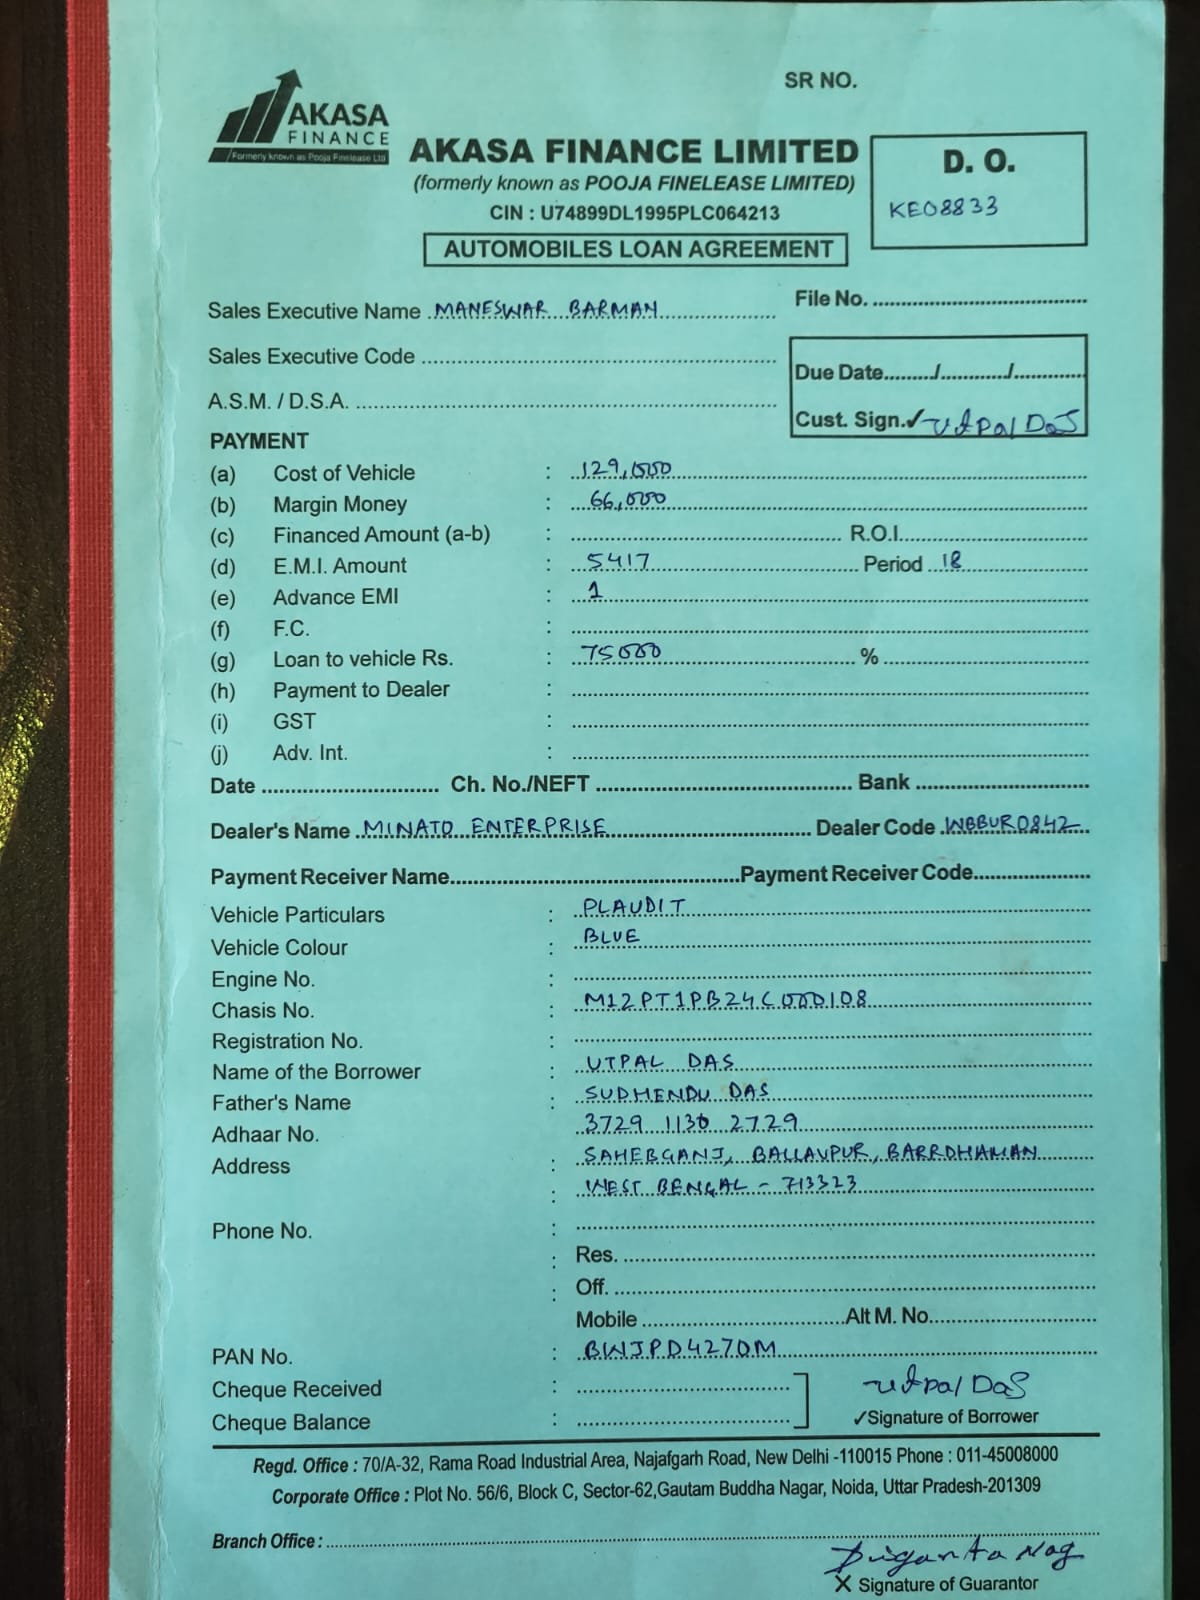 SR NO.
AKASA
FINANCE
Formerly known as Pooja Finelease Ltd
AKASA FINANCE LIMITED
(formerly known as POOJA FINELEASE LIMITED)
CIN : U74899DL1995PLC064213
AUTOMOBILES LOAN AGREEMENT
D. O.
KE08833
Sales Executive Name MANESWAR BARMAN
File No.
Sales Executive Code
Due Date / /
A.S.M. / D.S.A.
Cust. Sign. ✓ Utpal Das
PAYMENT
(a) Cost of Vehicle : 129,000
(b) Margin Money : 66,000
(c) Financed Amount (a-b) : R.O.I.
(d) E.M.I. Amount : 5417 Period 18
(e) Advance EMI : 1
(f) F.C. :
(g) Loan to vehicle Rs. : 75000 %
(h) Payment to Dealer :
(i) GST :
(j) Adv. Int. :
Date Ch. No./NEFT Bank
Dealer's Name MINATO ENTERPRISE Dealer Code WBBUR0842
Payment Receiver Name Payment Receiver Code
Vehicle Particulars : PLAUDIT
Vehicle Colour : BLUE
Engine No. :
Chasis No. : M12PT1PB24C000108
Registration No. :
Name of the Borrower : UTPAL DAS
Father's Name : SUDHENDU DAS
Adhaar No. 3729 1130 2729
Address : SAHEBGANJ, BALLAVPUR, BARRDHAMAN
: WEST BENGAL - 713323
Phone No. :
: Res.
: Off.
Mobile Alt M. No.
PAN No. : BWJPD4270M
Cheque Received :
Utpal Das
Cheque Balance :
✓Signature of Borrower
Regd. Office : 70/A-32, Rama Road Industrial Area, Najafgarh Road, New Delhi -110015 Phone : 011-45008000
Corporate Office : Plot No. 56/6, Block C, Sector-62,Gautam Buddha Nagar, Noida, Uttar Pradesh-201309
Branch Office :
Diganta Nag
X Signature of Guarantor